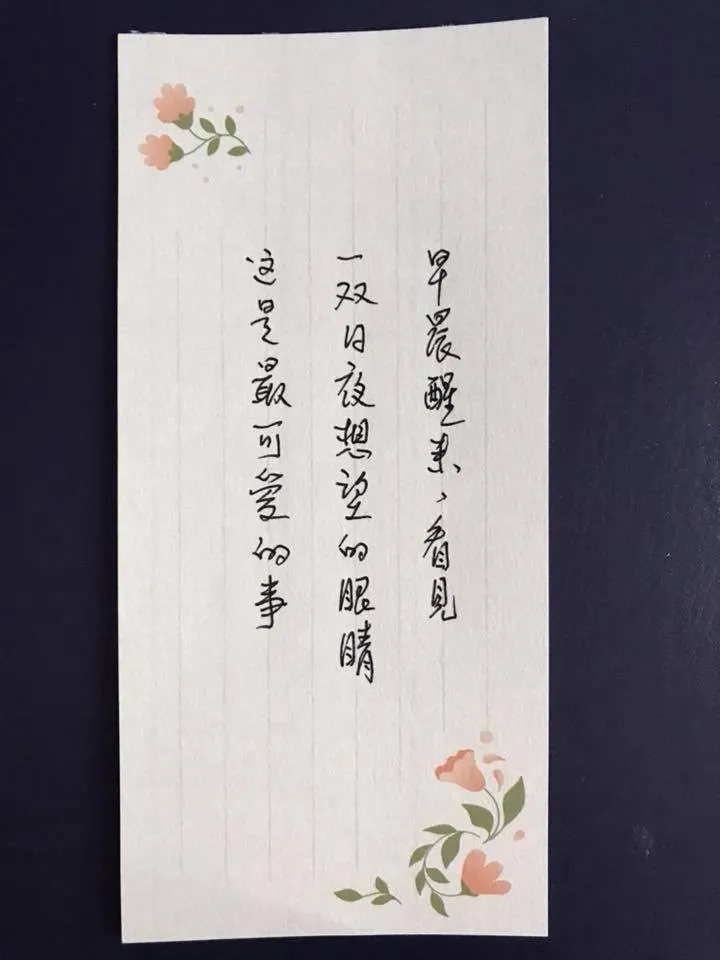 早晨醒来、看見
一双日夜想望的眼睛
这是最可爱的事